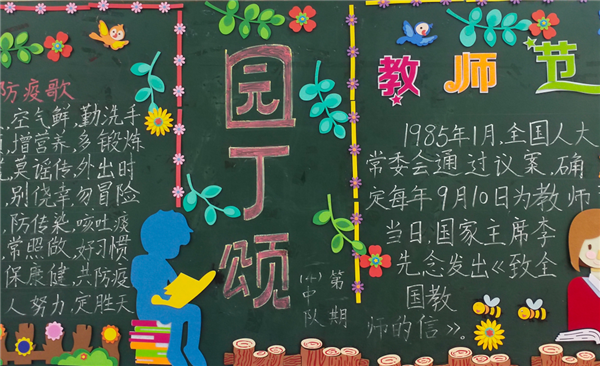 防疫歌
,空气鲜,勤洗手
增营养,多锻炼
,莫谣传,外出时
别侥幸,勿冒险
防传染,咳吐痰
,常照做,好习惯
保康健,共防疫
人努力,定胜天
园丁颂
第 期
中队
教师节
1985年1月,全国人大
常委会通过议案,确
定每年9月10日为教师
当日,国家主席李
先念发出《致全
国教
师的信》。